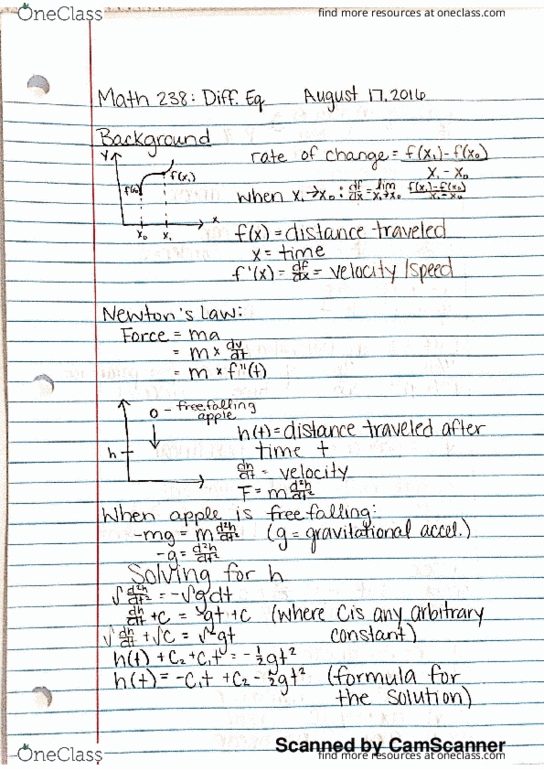 OneClass
find more resources at oneclass.com
Math 238: Diff. Eq August 17, 2016
Background
rate of change = f(x₁)-f(x₀) / x₁-x₀
y
f(x₀)
f(x₁)
x
x₀ x₁
when x₁→x₀: df/dx = lim x₁→x₀ f(x₁)-f(x₀) / x₁-x₀
f(x) = distance traveled
x = time
f'(x) = df/dx = velocity/speed
Newton's law:
Force = ma
= m x dv/dt
= m x f"(t)
o - free falling
apple
h
h(t) = distance traveled after
time t
dh/dt = velocity
F = m d²h/dt²
When apple is free falling:
-mg = m d²h/dt² (g = gravitational accel.)
-g = d²h/dt²
Solving for h
∫ d²h/dt² = -∫g dt
dh/dt + C = -gt + C (where C is any arbitrary
constant)
∫ dh/dt + ∫C = ∫-gt
h(t) + C₂ + C₁t = -½gt²
h(t) = -C₁t + C₂ - ½gt² (formula for
the solution)
Scanned by CamScanner
OneClass
find more resources at oneclass.com